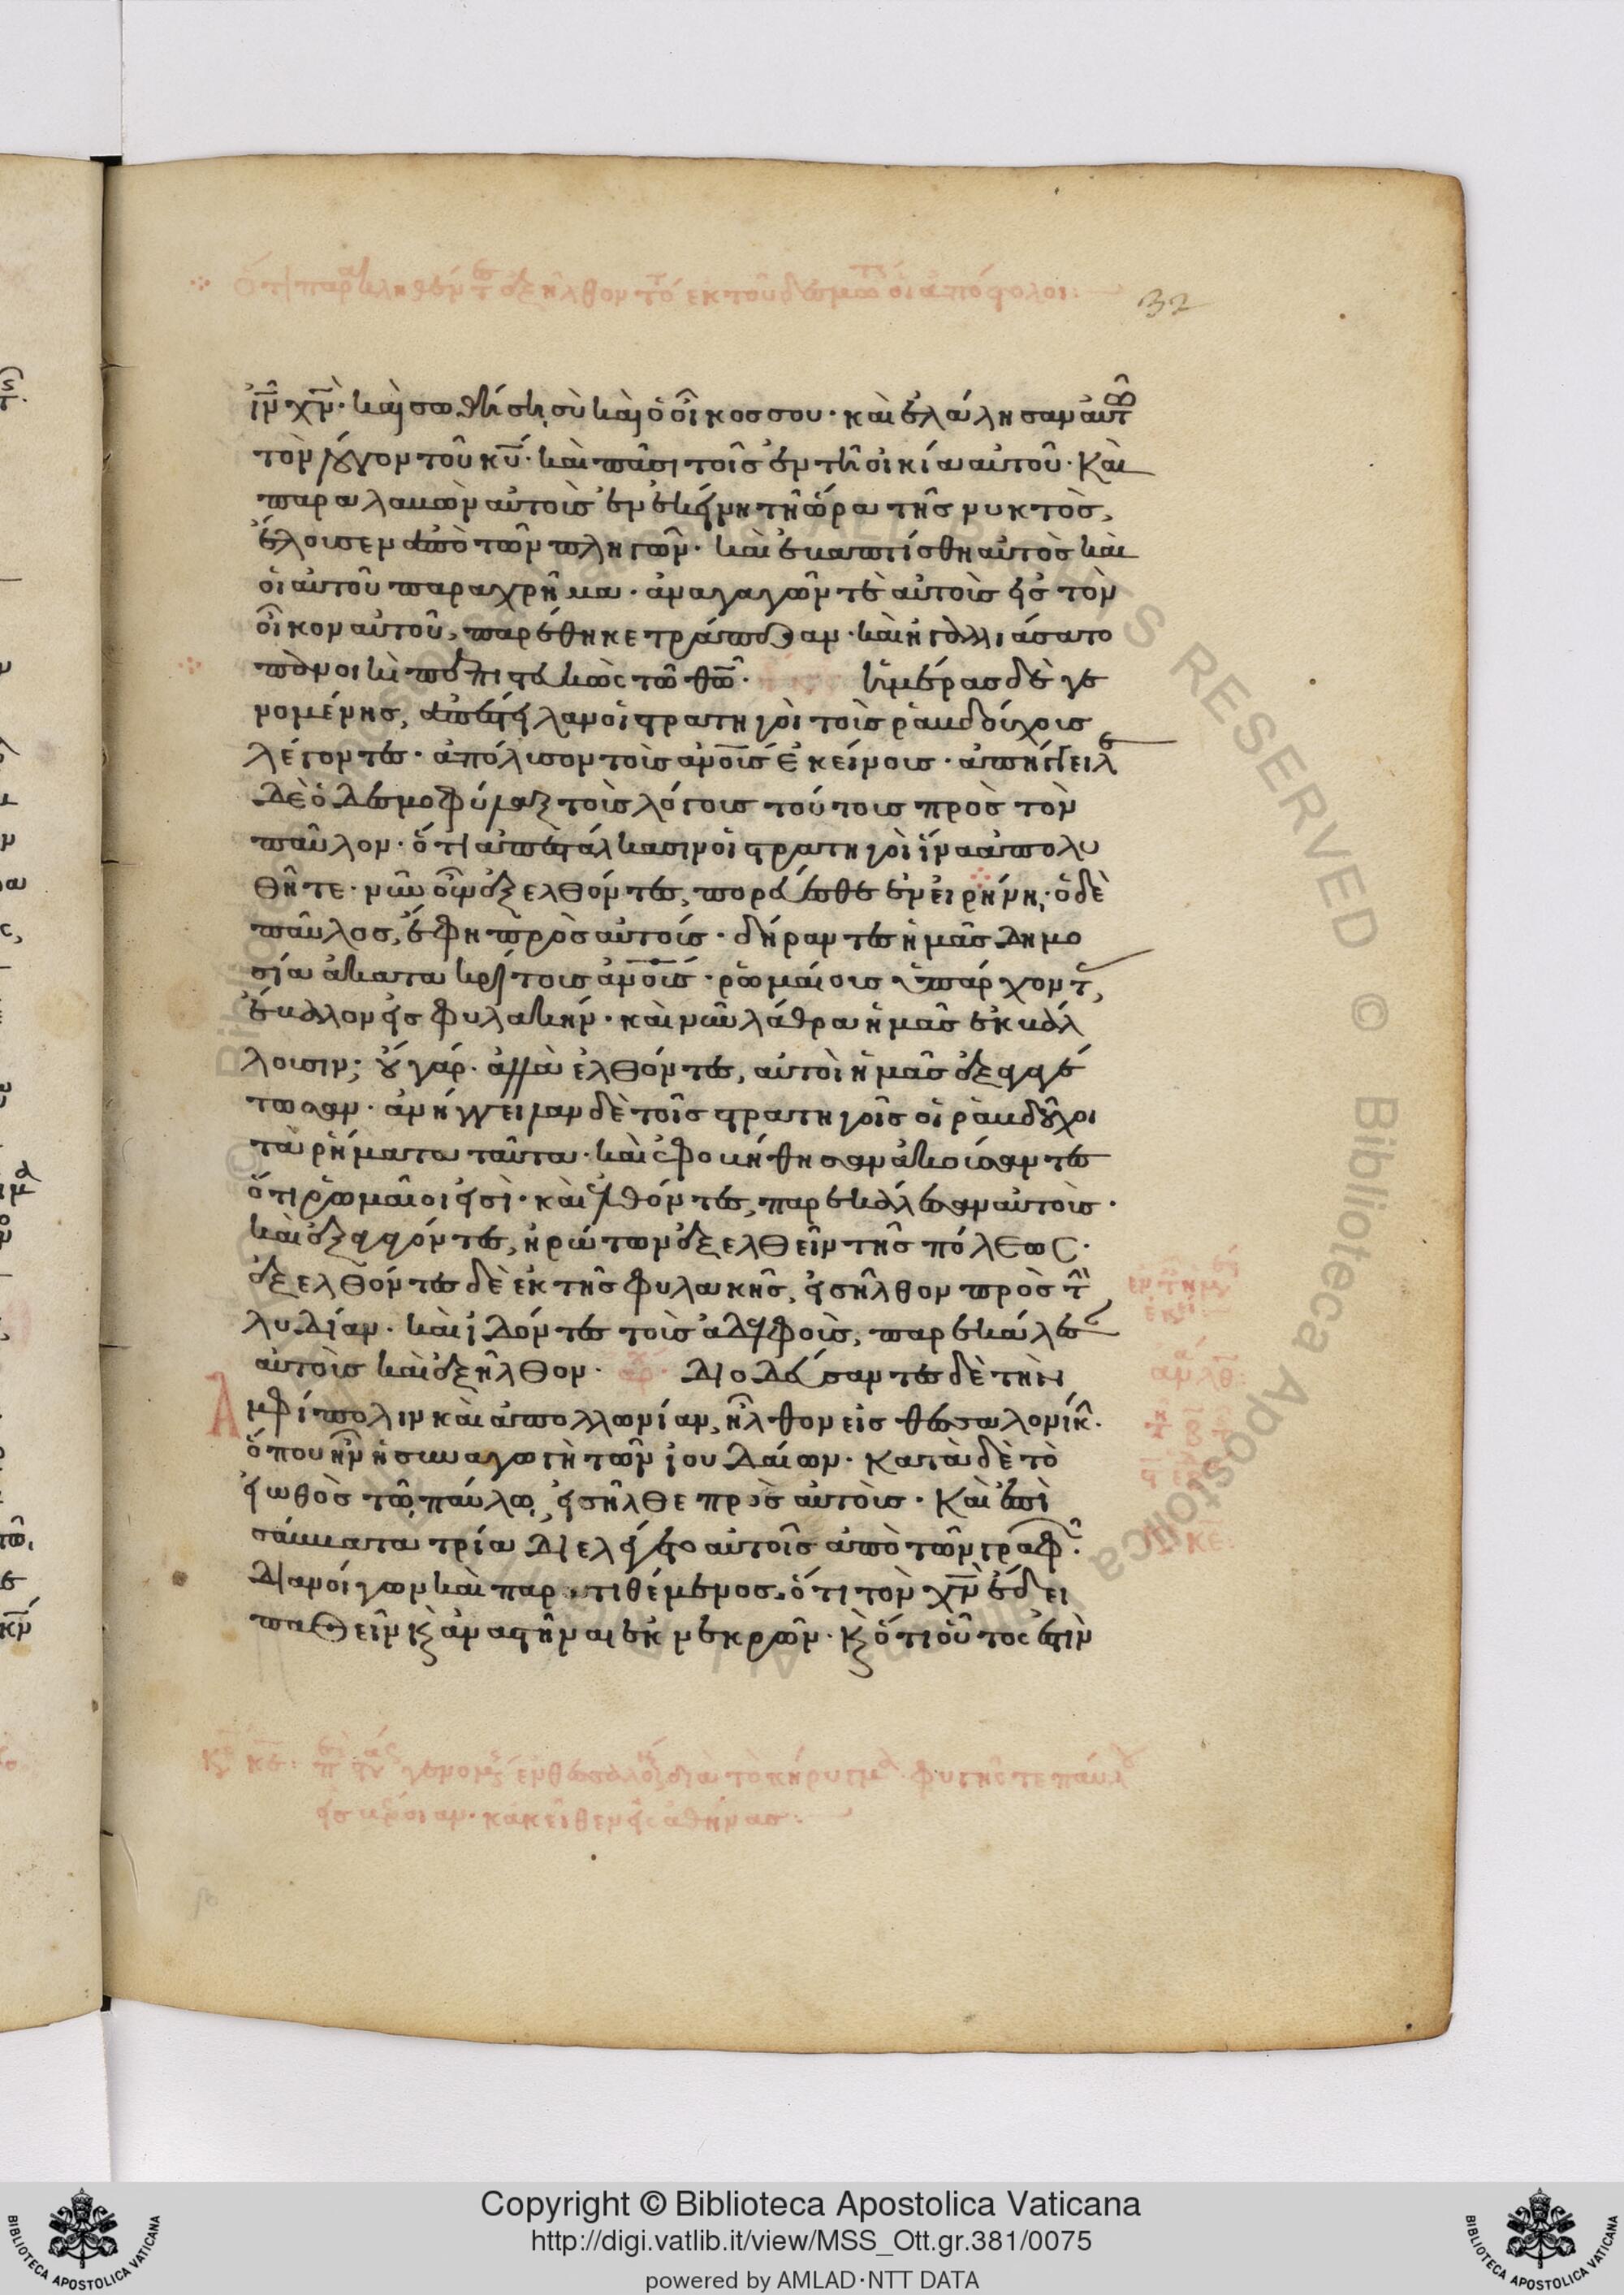 32
ιν χν· καὶ σωθήση σὺ καὶ ὁ οἶκος σου· καὶ ἐλάλησαν αὐτῶ
τὸν λόγον τοῦ κυ· καὶ πᾶσι τοῖς ἐν τῆ οἰκία αὐτοῦ· Καὶ
παραλαβὼν αὐτοὺς ἐν ἐκείνη τῆ ὥρα τῆς νυκτὸς,
ἔλουσεν ἀπὸ τῶν πληγῶν· καὶ ἐβαπτίσθη αὐτὸς καὶ
οἱ αὐτοῦ παραχρῆμα· ἀναγαγῶν τὲ αὐτοὺς εἰς τὸν
οἶκον αὐτοῦ, παρέθηκε τράπεζαν· καὶ ἠγαλλιάσατο
πανοικὶ πεπιστευκὼς τῶ θω· ἡμέρας δὲ γε
νομένης, ἀπέστειλαν οἱ στρατηγοὶ τοὺς ῥαβδούχους
λέγοντες· ἀπόλυσον τοὺς ανους ἐκείνους· ἀπήγγειλε
δὲ ὁ δεσμοφύλαξ τοὺς λόγους τούτους πρὸς τὸν
παῦλον· ὅτι ἀπεστάλκασιν οἱ στρατηγοὶ ἵνα ἀπολυ
θῆτε· νῦν οὖν ἐξελθόντες, πορεύεσθε ἐν εἰρήνη· ὁ δὲ
παῦλος, ἔφη πρὸς αὐτούς· δήραντες ἡμᾶς δημο
σία ἀκατακρίτους ανους· ῥωμαίους ὑπάρχοντ,
ἔβαλον εἰς φυλακήν· καὶ νῦν λάθρα ἡμᾶς ἐκβάλ
λουσιν; οὐ γάρ· ἀλλὰ ἐλθόντες, αὐτοὶ ἡμᾶς ἐξαγαγέ
τωσαν· ἀνήγγειλαν δὲ τοῖς στρατηγοῖς οἱ ῥαβδοῦχοι
τὰ ῥήματα ταῦτα· καὶ ἐφοβήθησαν ἀκούσαντες
ὅτι ῥωμαῖοι εἰσὶ· καὶ ἐλθόντες, παρεκάλεσαν αὐτοὺς·
καὶ ἐξαγαγόντες, ἠρώτων ἐξελθεῖν τῆς πόλεως·
ἐξελθόντες δὲ ἐκ τῆς φυλακῆς, εἰσῆλθον πρὸς τ
λυδίαν· καὶ ἰδόντες τοὺς ἀδελφοὺς, παρεκάλεσ
αὐτοὺς καὶ ἐξῆλθον· Διοδεύσαντες δὲ τὴν
Αμφίπολιν καὶ ἀπολλωνίαν, ἦλθον εἰς θεσσαλονίκ·
ὅπου ἦν ἡ συναγωγὴ τῶν ἰουδαίων· κατὰ δὲ τὸ
εἰωθὸς τῶ παύλω, εἰσῆλθε πρὸς αὐτοὺς· Καὶ ἐπὶ
σάββατα τρία διελέγετο αὐτοῖς ἀπὸ τῶν γραφ·
διανοίγων καὶ παρατιθέμενος· ὅτι τὸν χν ἔδει
παθεῖν κ ἀναστῆναι ἐκ νεκρῶν· κ ὅτι οὗτος ἐστὶν
Copyright © Biblioteca Apostolica Vaticana
http://digi.vatlib.it/view/MSS_Ott.gr.381/0075
powered by AMLAD·NTT DATA
BIBLIOTECA APOSTOLICA VATICANA
BIBLIOTECA APOSTOLICA VATICANA